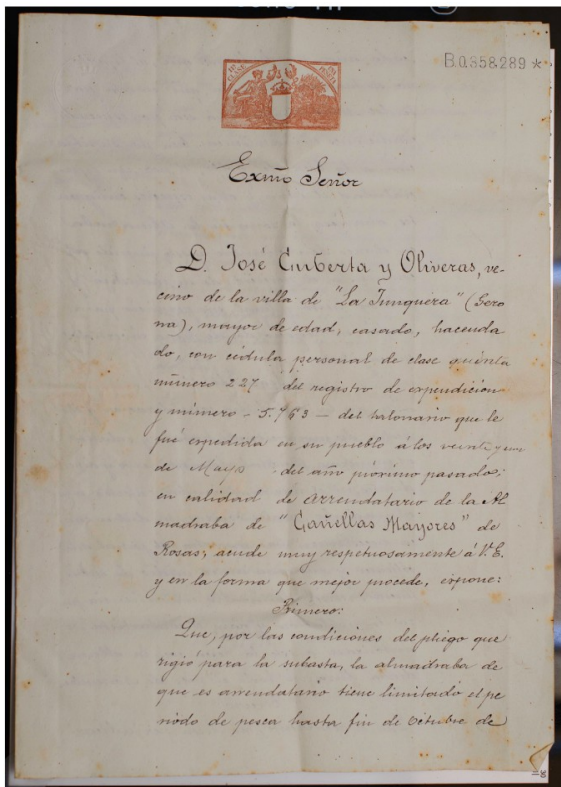 B.0.858.289 *
Exmo Señor
D. José Gurberta y Oliveras, ve-
cino de la villa de "La Junquera" (Gero
na), mayor de edad, casado, hacenda
do, con cédula personal de clase quinta
número 227 del registro de expendición
y número - 5.763 - del talonario que le
fué expedida en su pueblo á los veinte y uno
de Mayo del año próximo pasado;
en calidad de arrendatario de la Al
madraba de "Cañellas Mayores" de
Rosas; acude muy respetuosamente á V.E.
y en la forma que mejor procede, expone:
Primero:
Que, por las condiciones del pliego que
rigió para la subasta, la almadraba de
que es arrendatario tiene limitado el pe
riodo de pesca hasta fin de Octubre de